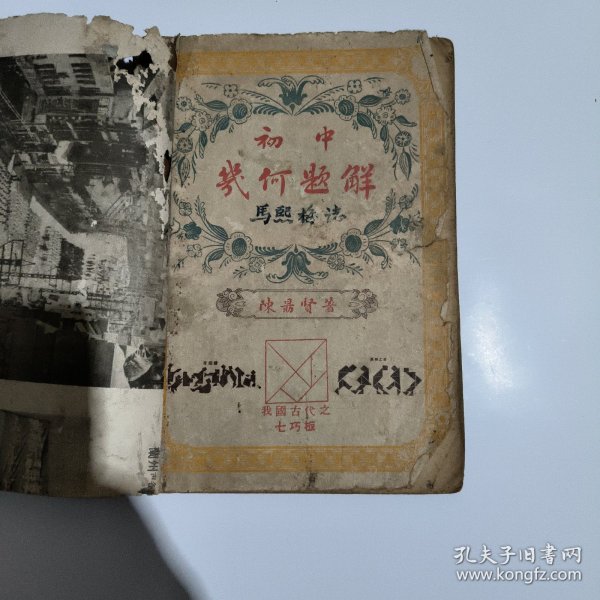 初中
幾何題解
馬熙
陳鼎賢著
我國古代之
七巧板
孔夫子旧书网
www.kongfz.com